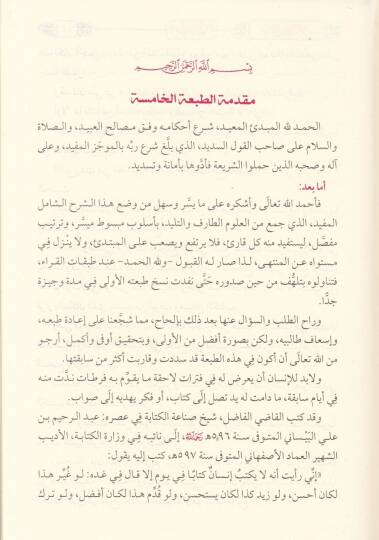 بسم الله الرحمن الرحيم
مقدمة الطبعة الخامسة
الحمد لله المبدئ المعيد، شرع أحكامه وفق مصالح العبيد، والصلاة
والسلام على صاحب القول السديد، الذي بلَّغ شرع ربه بالموجَز المفيد، وعلى
آله وصحبه الذين حملوا الشريعة فأدَّوها بأمانة وتسديد.
أما بعد:
فأحمد الله تعالى وأشكره على ما يسَّر وسهل من وضع هذا الشرح الشامل
المفيد، الذي جمع من العلوم الطارف والتليد، بأسلوب مبسوط ميسَّر، وترتيب
مفصَّل، ليستفيد منه كل قارئ، فلا يرتفع ويصعب على المبتدئ، ولا ينزل في
مستواه عن المنتهي، لذا صار له القبول -ولله الحمد- عند طبقات القراء،
فتناولوه بتلهُّف من حين صدوره حَتَّى نفدت نسخ طبعته الأولى في مدة وجيزة
جدًّا.
وراح الطلب والسؤال عنها بعد ذلك بإلحاح، مما شجَّعنا على إعادة طبعه،
وإسعاف طالبيه، ولكن بصورة أفضل من الأولى، وبتحقيق أوفى وأكمل، أرجو
من الله تعالى أن أكون في هذه الطبعة قد سددت وقاربت أكثر من سابقتها.
ولابد للإنسان أن يعرض له في فترات لاحقة ما يقوِّم به فرطات ندَّت منه
في أيام سابقة، ما دامت له يد تصل إلى كتاب، أو فكر يهديه إلى صواب.
وقد كتب القاضي الفاضل، شيخ صناعة الكتابة في عصره: عبد الرحيم بن
علي البَيْساني المتوفى سنة ٥٩٦هـ رحمه الله، إلى نائبه في وزارة الكتابة، الأديب
الشهير العماد الأصفهاني المتوفى سنة ٥٩٧هـ، كتب إليه يقول:
«إنِّي رأيت أنه لا يكتبُ إنسانٌ كتابًا في يوم إلا قال في غده: لو غُيِّر هذا
لكان أحسن، ولو زيد كذا لكان يستحسن، ولو قُدِّم هذا لكان أفضل، ولو ترك